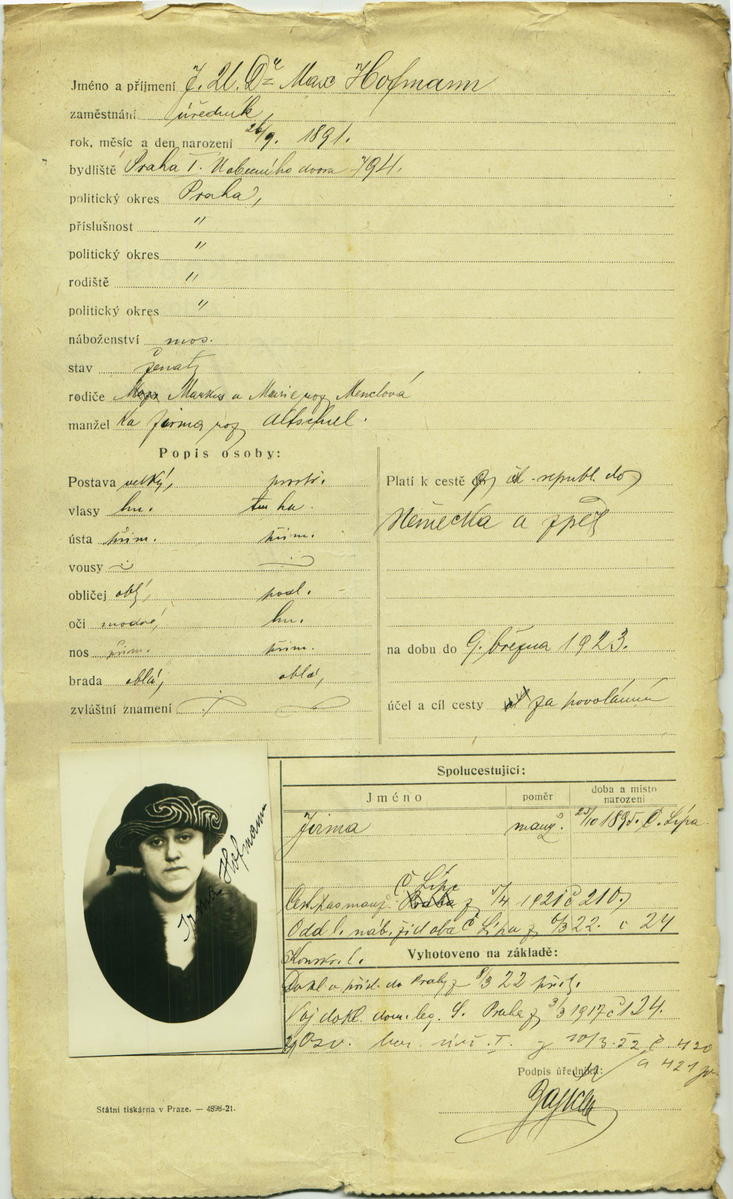 Jméno a příjmení J. U. Dr Max Hofmann
zaměstnání úředník,
rok, měsíc a den narození 26/9. 1891.
bydliště Praha I. U obecního dvora 794.
politický okres Praha,
příslušnost "
politický okres "
rodiště "
politický okres "
náboženství mos.
stav ženatý
rodiče Markus a Marie roz Menclová
manžel ka Jirma roz Altschul.
Popis osoby:
Postava velký, prostř.
vlasy hn. tm ha
ústa přim. přim.
vousy
obličej oblý, podl.
oči modré, hn.
nos přim. přim.
brada oblá, oblá,
zvláštní znamení
Platí k cestě čsl. republ. do
Německa a zpět
na dobu do 9. března 1923.
účel a cíl cesty za povoláním
Spolucestující:
Jméno poměr doba a místo narození
Jirma manž. 25/10 1895. Č. Lípa.
Č Lípa
z 5/4 1921 č 210,
Odd l. náb. žid obce Č Lípa z 6/3 22. č 24
Vyhotoveno na základě:
Prahy z 8/3 22
Voj dokl. dom. Praha z 3/3 1917 č 124.
z 10/3. 22 č. 420
a 421
Podpis úředníka:
Irma Hofmann
Státní tiskárna v Praze. — 4898-21.